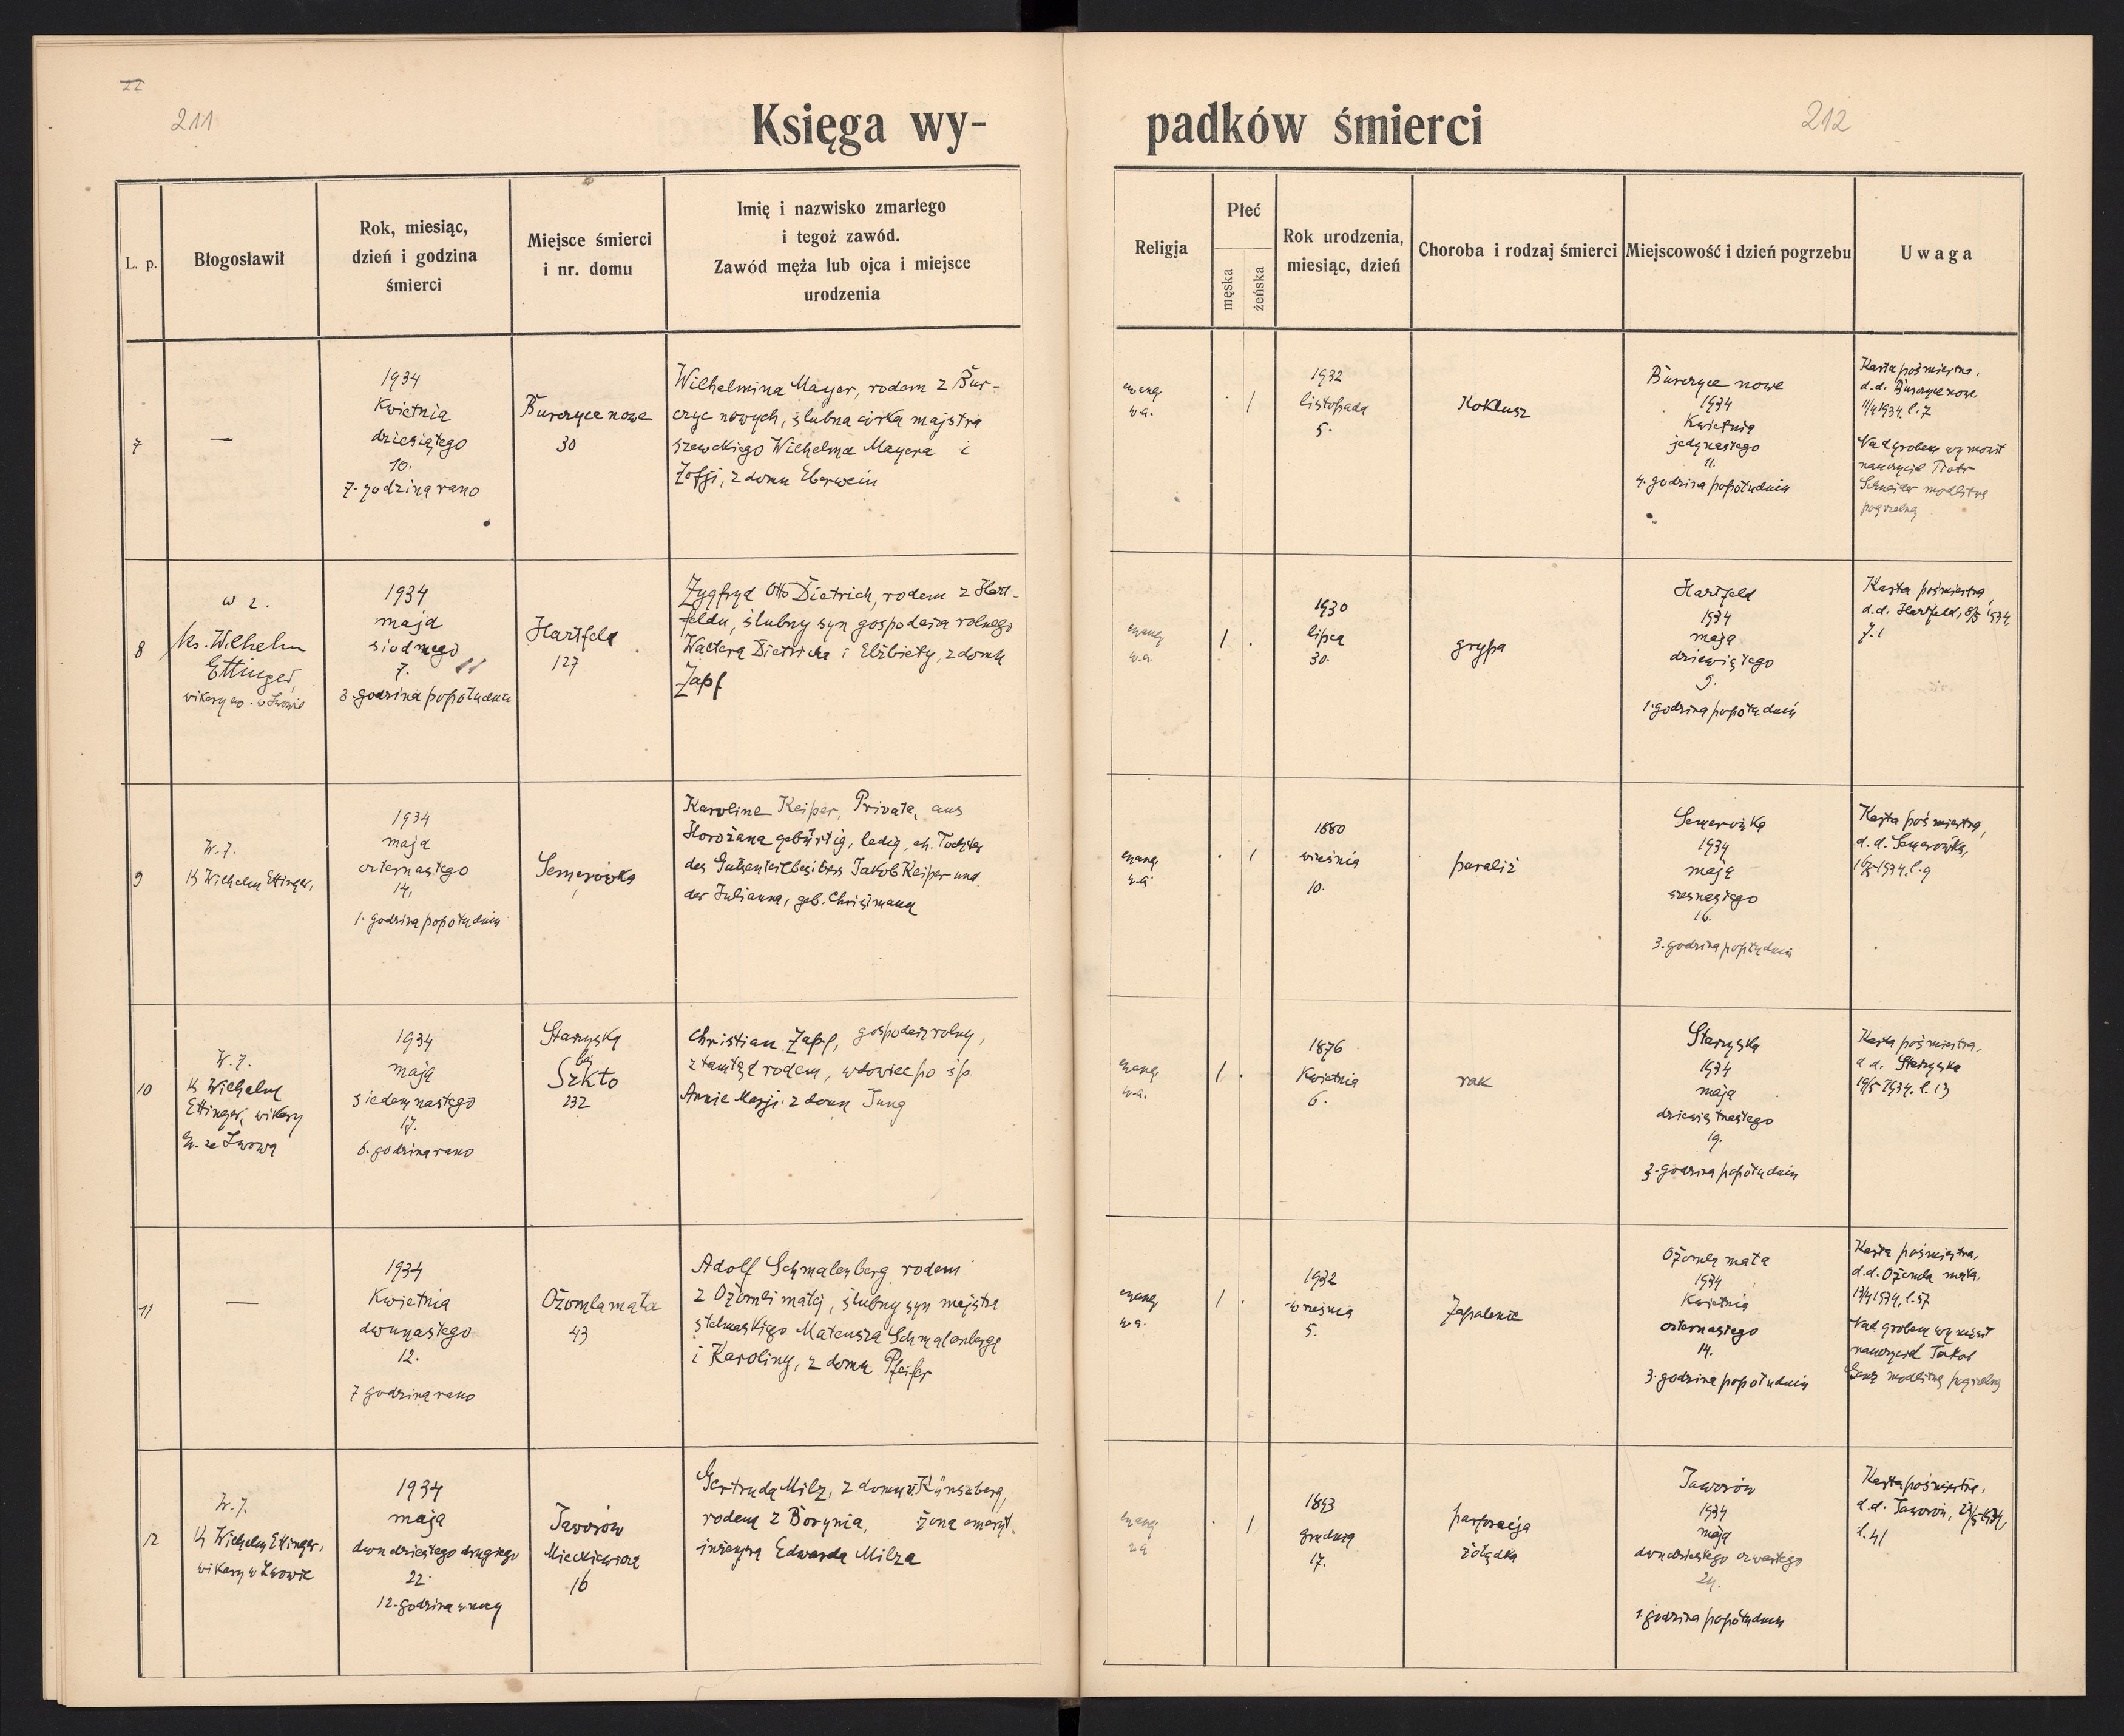 211
Księga wy-
padków śmierci
212
L. p.
Błogosławił
Rok, miesiąc,
dzień i godzina
śmierci
Miejsce śmierci
i nr. domu
Imię i nazwisko zmarłego
i tegoż zawód.
Zawód męża lub ojca i miejsce
urodzenia
Religja
Płeć
męska
żeńska
Rok urodzenia,
miesiąc, dzień
Choroba i rodzaj śmierci
Miejscowość i dzień pogrzebu
Uwaga
7
—
1934
Kwietnia
dziesiątego
10.
7. godzina rano
Burczyce nowe
30
Wilhelmina Mayer, rodem z Bur-
czyc nowych, ślubna córka majstra
szewckiego Wilhelma Mayera i
Zofji, z domu Eberwein
ewang.
w.a.
. /
1932
listopada
5.
Koklusz
Burczyce nowe
1934
Kwietnia
jedynastego
11.
4. godzina popołudniu
Karta pośmiertna,
d.d. Burczyce nowe
11/4 1934. l. 7
Nad grobem wymówił
nauczyciel Piotr
Schneider modlitwę
pogrzebną
8
w z.
ks. Wilhelm
Ettinger,
wikary w Lwowie
1934
maja
siódmego
7.
3. godzina popołudniu
Hartfeld
127
Zygfryd Otto Dietrich, rodem z Hart-
feldu, ślubny syn gospodarza rolnego
Waltera Dietricha i Elżbiety, z domu
Zapf
ewang.
w.a.
/ .
1930
lipca
30.
grypa
Hartfeld
1934
maja
dziewiątego
9.
1. godzina popołudniu
Karta pośmiertna,
d.d. Hartfeld, 8/5 1934,
9
W. z.
ks Wilhelm Ettinger,
1934
maja
czternastego
14.
1. godzina popołudniu
Semerówka
Karoline Keiper, Private, aus
Horożana gebürtig, ledig, eh. Tochter
des Gutsanteilbesitzers Jakob Keiper und
der Julianna, geb. Christmann
ewang.
w.a.
. /
1880
września
10.
paraliż
Semerówka
1934
maja
szesnastego
16.
3. godzina popołudniu
Karta pośmiertna,
d.d. Semerówka,
16/5 1934. l. 9
10
W. z.
ks Wilhelm
Ettinger, wikary
w. ze Lwowa
1934
maja
siedemnastego
17.
6. godzina rano
Starzyska
Szkło
232
Christian Zapf, gospodarz rolny,
z tamtąd rodem, wdowiec po ś.p.
Annie Marji z domu Jung
ewang.
w.a.
/ .
1876
Kwietnia
6.
rak
Starzyska
1934
maja
dziewiętnastego
19.
3. godzina popołudniu
Karta pośmiertna,
d.d. Starzyska
19/5 1934. l. 13
11
—
1934
Kwietnia
dwunastego
12.
7 godzina rano
Ożomla mała
43
Adolf Schmalenberg rodem
z Ożomli małej, ślubny syn majstra
stelmaskiego Mateusza Schmalenberga
i Karoliny, z domu Pfeifer
ewang.
w.a.
/ .
1932
września
5.
Zapalenie
Ożomla mała
1934
Kwietnia
czternastego
14.
3. godzina popołudniu
Karta pośmiertna,
d.d. Ożomla mała,
13/4 1934, l. 57
Nad grobem wymówił
nauczyciel Jakob
modlitwę pogrzebną
12
W. z.
ks Wilhelm Ettinger,
wikary w Lwowie
1934
maja
dwudziestego drugiego
22.
12. godzina w nocy
Jaworów
Mickiewicza
16
Gertruda Milz, z domu v. Künssberg,
rodem z Borynia, żona emeryt.
inżenjera Edwarda Milza
ewang.
w.a.
. /
1893
grudnia
17.
parforacja
żołądka
Jaworów
1934
maja
dwudziestego czwartego
24.
1. godzina popołudniu
Karta pośmiertna,
d.d. Jaworów, 23/5 1934,
l. 41